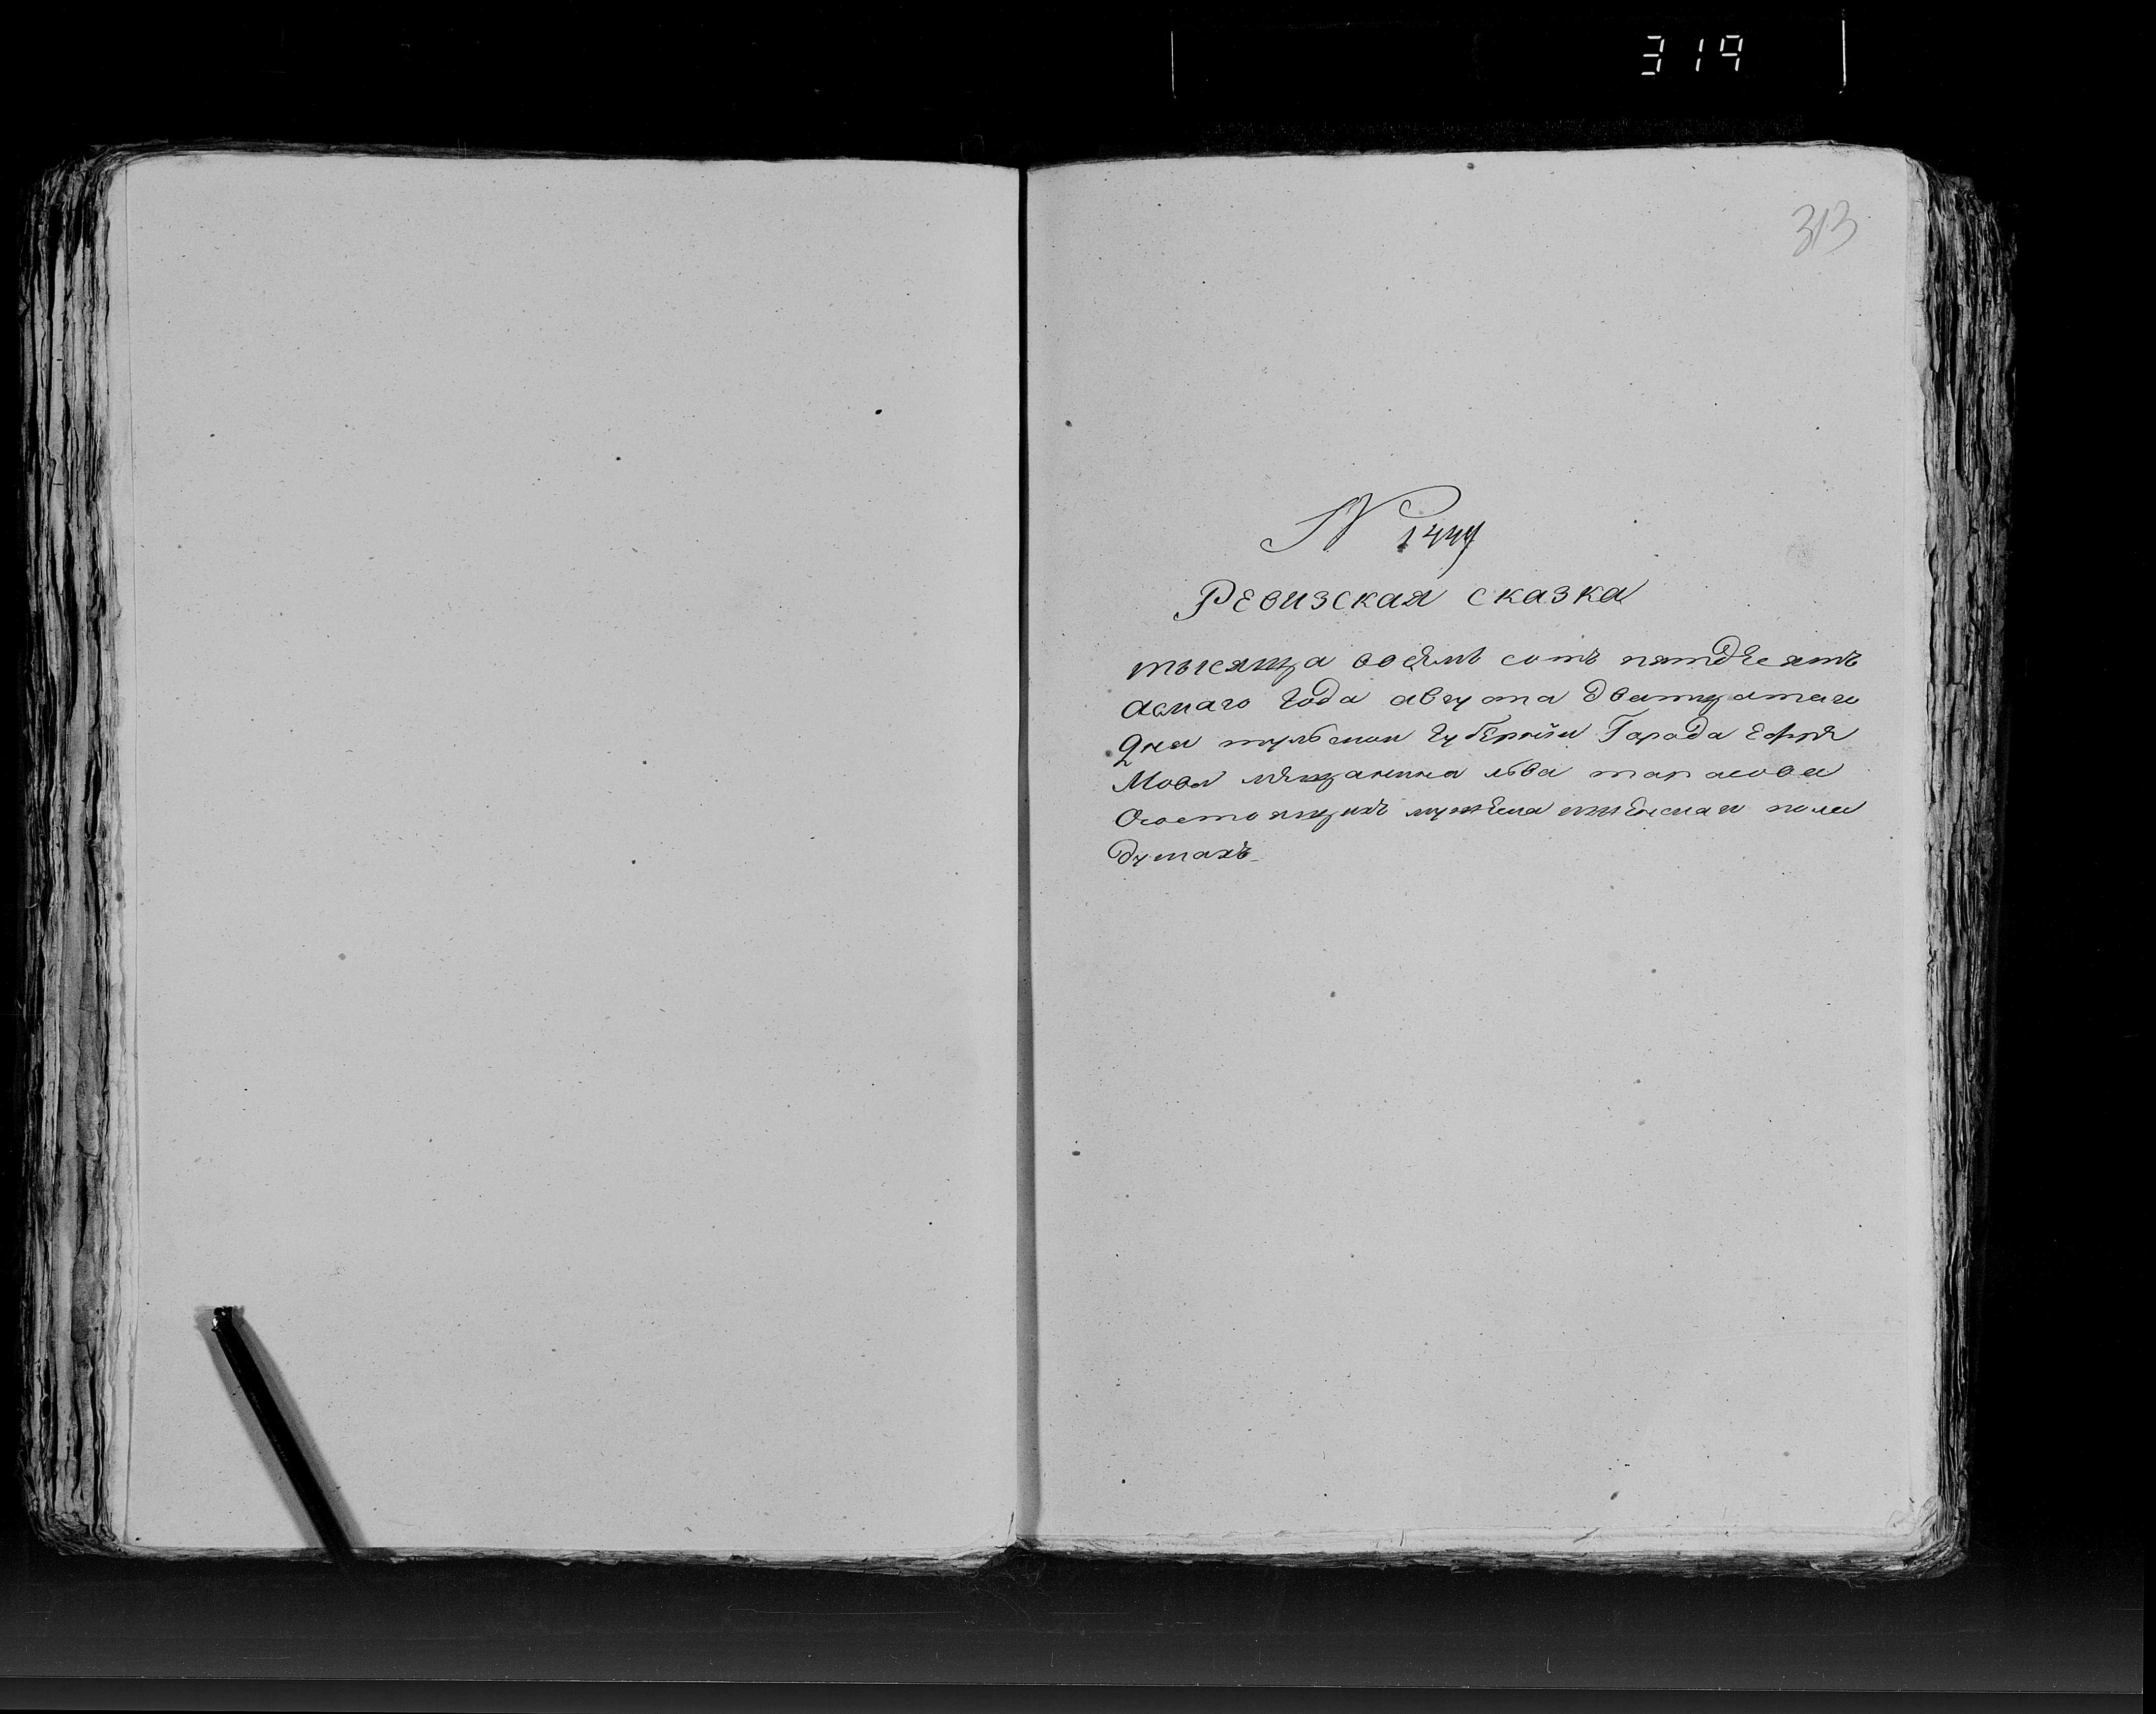 319
313
N 144
Ревизская сказка
тысяща восемь сотъ пятдесятъ
асмаго года августа Дватцатаго
Дня тульской губернiи Города Ефре
Мова мещанина льва тарасова
Осостоящихъ мужеска иженскаго пола
душахъ